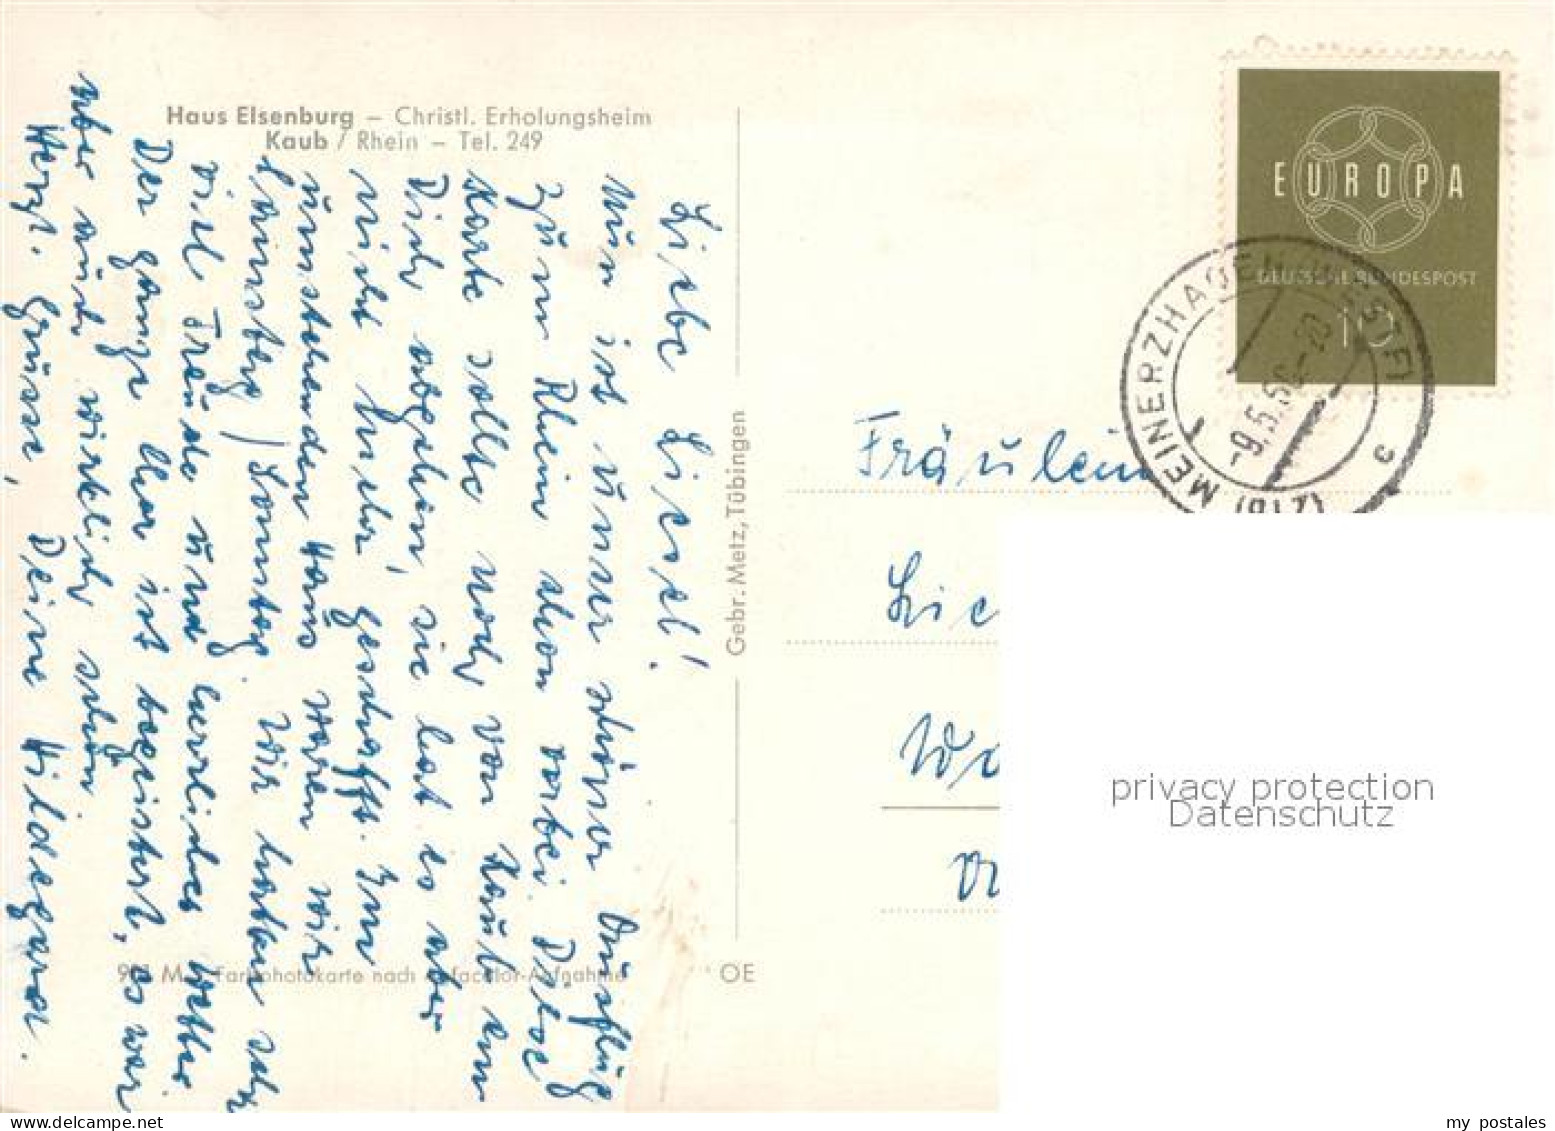 Haus Elsenburg – Christl. Erholungsheim
Kaub / Rhein – Tel. 249
Liebe Liesel!
Nun ist unser schöner Ausflug
zum Rhein schon vorbei. Diese
Karte sollte noch von Kaub an
Dich abgehen, sie hat es aber
nicht mehr geschafft. Im
umstehenden Haus waren wir
Samstag / Sonntag. Wir hatten sehr
viel Freude und herrliches Wetter.
Der ganze Chor ist begeistert, es war
aber auch wirklich schön
Herzl. Grüsse, Deine Hildegard.
Gebr. Metz, Tübingen
Farbphotokarte nach
OE
EUROPA
DEUTSCHE BUNDESPOST
10
MEINERZHAGEN (WESTF)
c
(21b)
Fräulein
privacy protection
Datenschutz
my postales